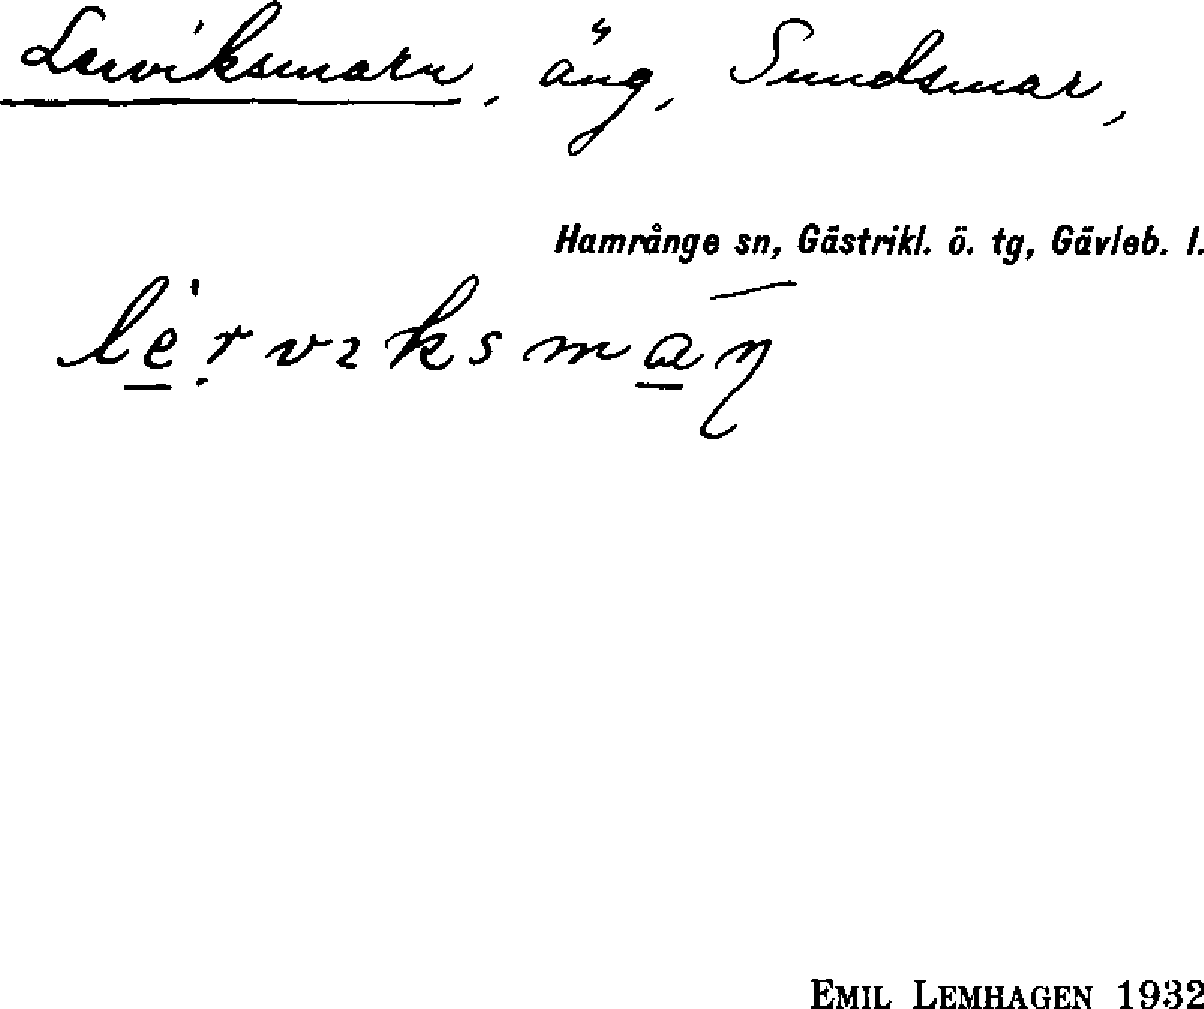 Lerviksmarn, äng, Sundsmar,
Hamrånge sn, Gästrikl. ö. tg, Gävleb. l.
EMIL LEMHAGEN 1932